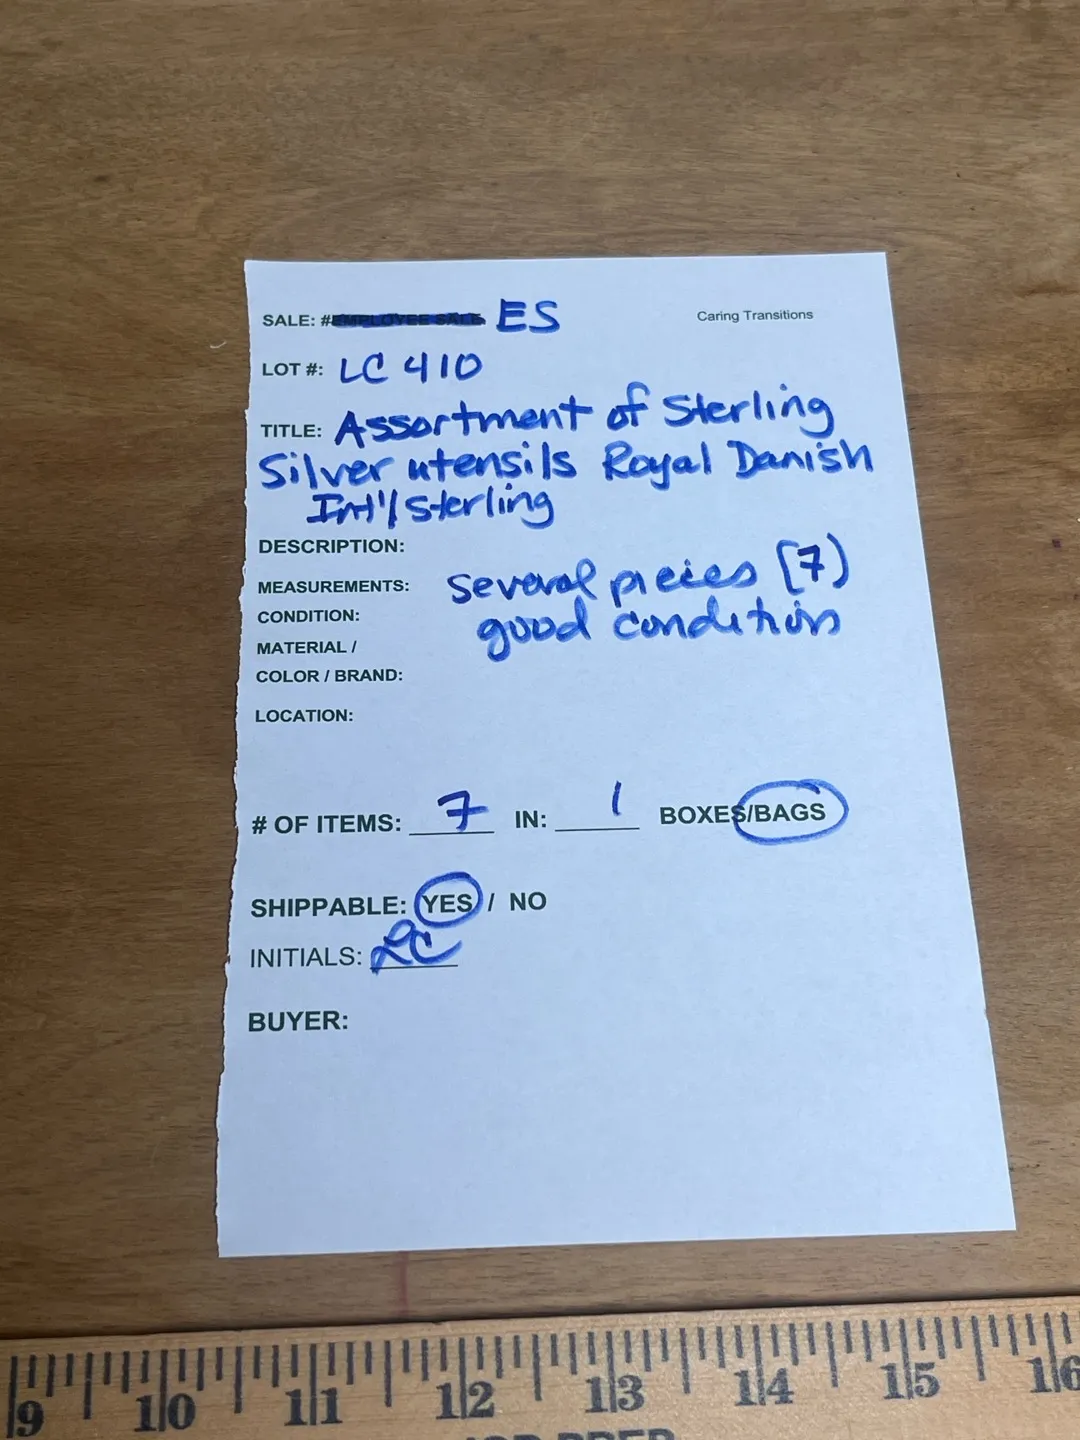 SALE: #EMPLOYEE SALE ES
Caring Transitions
LOT #: LC 410
TITLE: Assortment of Sterling
Silver utensils Royal Danish
Int'l Sterling
DESCRIPTION:
MEASUREMENTS: several pieces (7)
CONDITION: good condition
MATERIAL /
COLOR / BRAND:
LOCATION:
# OF ITEMS: 7 IN: 1 BOXES/BAGS
SHIPPABLE: YES / NO
INITIALS: LC
BUYER:
9 10 11 12 13 14 15 16